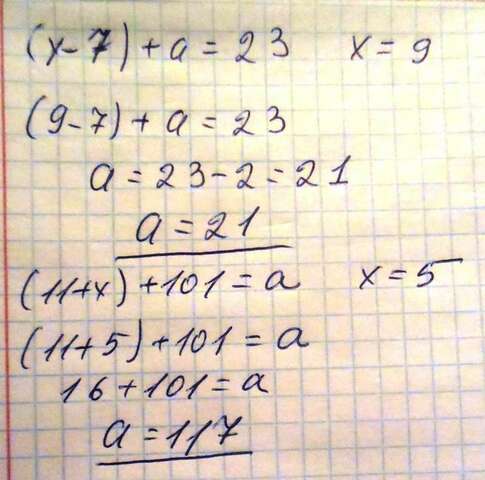 (x-7)+a=23 x=9
(9-7)+a=23
a=23-2=21
a=21
(11+x)+101=a x=5
(11+5)+101=a
16+101=a
a=117